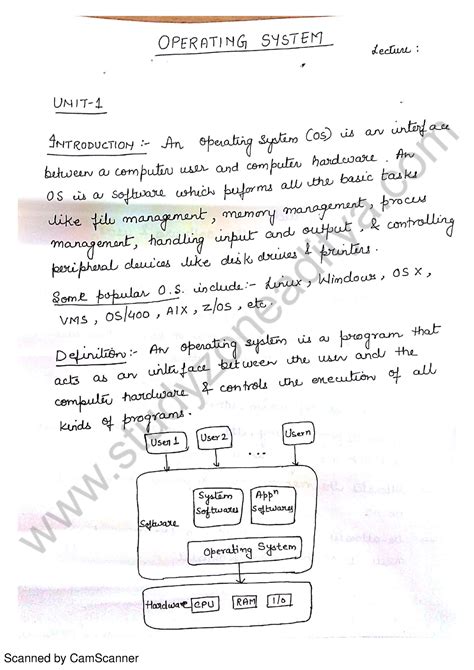 OPERATING SYSTEM
Lecture :
UNIT-1
INTRODUCTION :- An operating system (OS) is an interface
between a computer user and computer hardware. An
OS is a software which performs all the basic tasks
like file management, memory management, process
management, handling input and output, & controlling
peripheral devices like disk drives & printers.
Some popular O.S. include :- Linux, Windows, OS X,
VMS, OS/400, AIX, z/OS, etc.
Definition :- An operating system is a program that
acts as an interface between the user and the
computer hardware & controls the execution of all
kinds of programs.
User 1 User 2 ... Usern
System Softwares
Appn Softwares
Software
Operating System
Hardware CPU RAM I/O
www.studyzoneaditya.com
Scanned by CamScanner